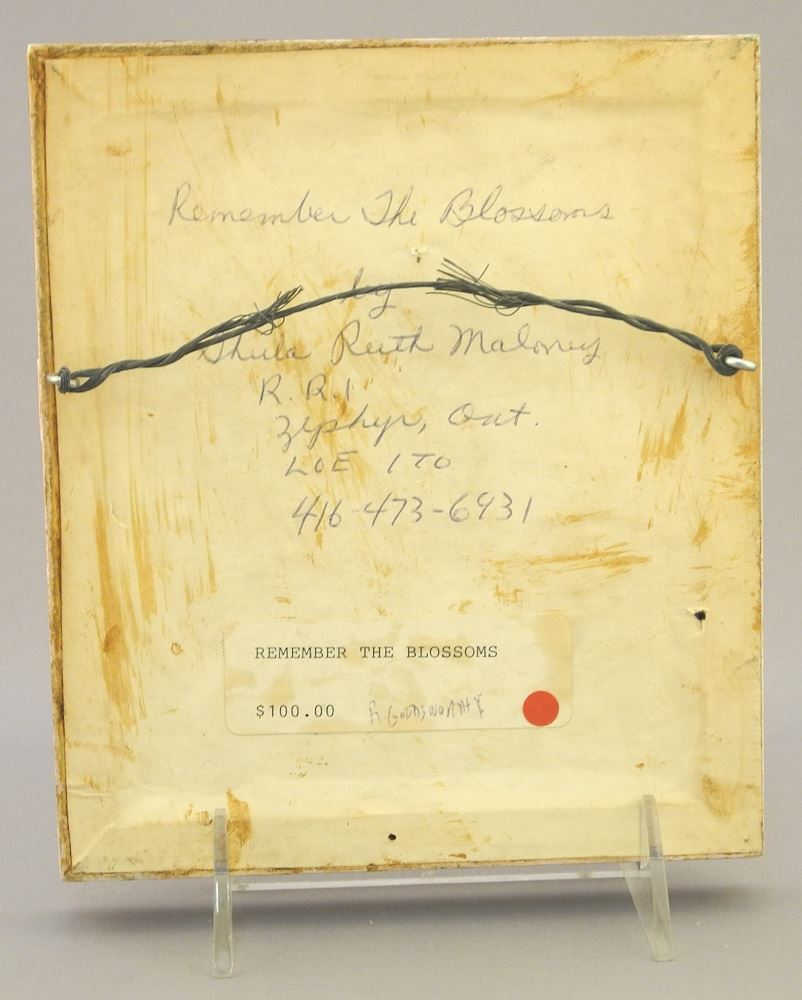 Remember The Blossoms
by
Shula Ruth Maloney
R.R.1
Zephyr, Ont.
L0E 1T0
416-473-6931
REMEMBER THE BLOSSOMS
$100.00 GOLDSWORTHY